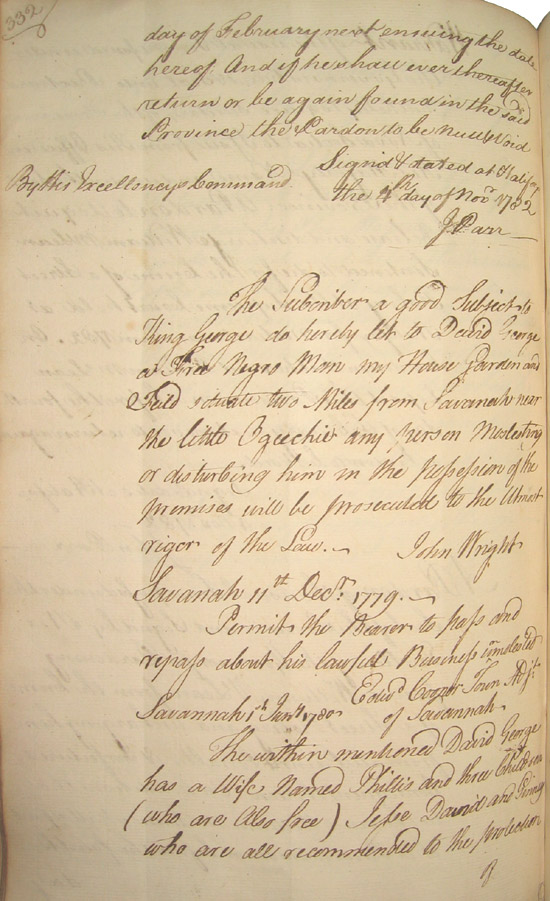 332
day of February next ensuing the date
hereof. And if he shall ever thereafter
return or be again found in the said
Province the Pardon to be null & Void
Signd & dated at Halifax
By His Excellencys Command
the 4th day of Novr 1782
J Parr
The Subcriber a good Subject to
King George do hereby let to David George
a Free Negro Man my House Garden and
Feild scituate two Miles from Savanah near
the little Ogeechie any person Molesting
or disturbing him in the possession of the
premises will be prosecuted to the Utmost
rigor of the Law.
John Wright
Savanah 11th Decr. 1779.
Permit the Bearer to pass and
repass about his lawfull Business unmolested
Edwd Cooper Town Adjt
Savannah 1st Jany 1780
of Savannah
The within mentioned David George
has a Wife Named Phillis and three Children
(who are Also free) Jesse David and Ginny
who are all recommended to the protection
of